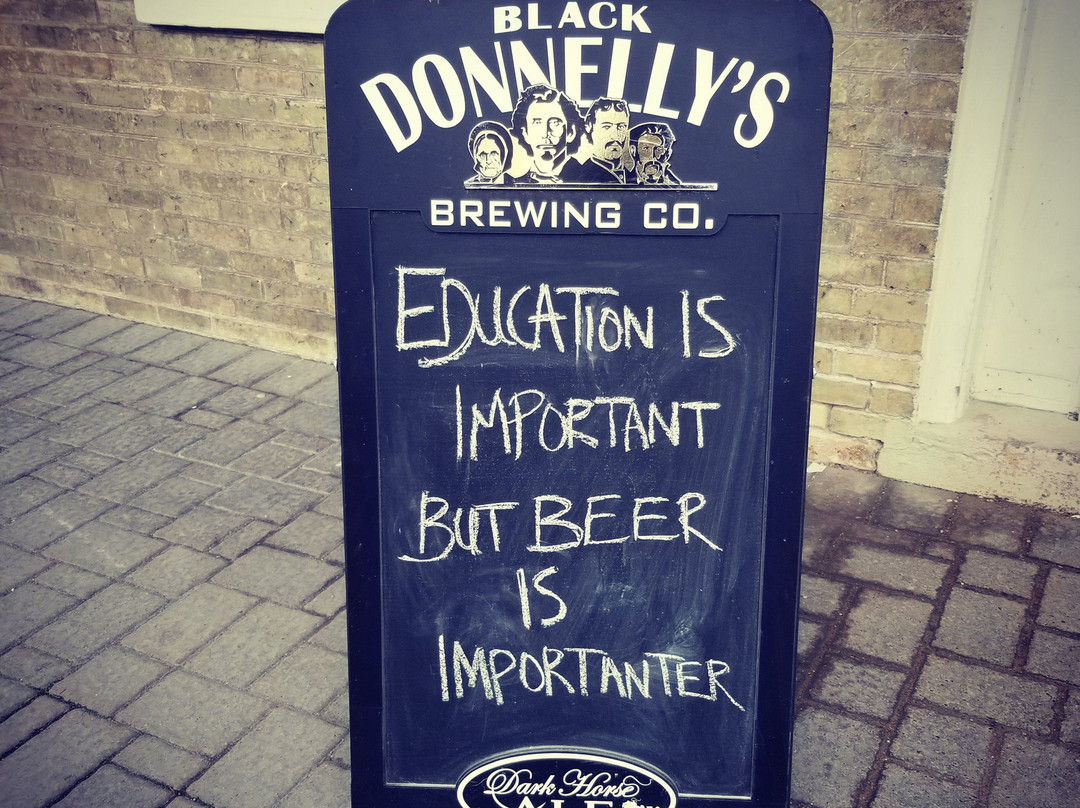 BLACK
DONNELLY'S
BREWING CO.
EDUCATION IS
IMPORTANT
BUT BEER
IS
IMPORTANTER
Dark Horse
ALE